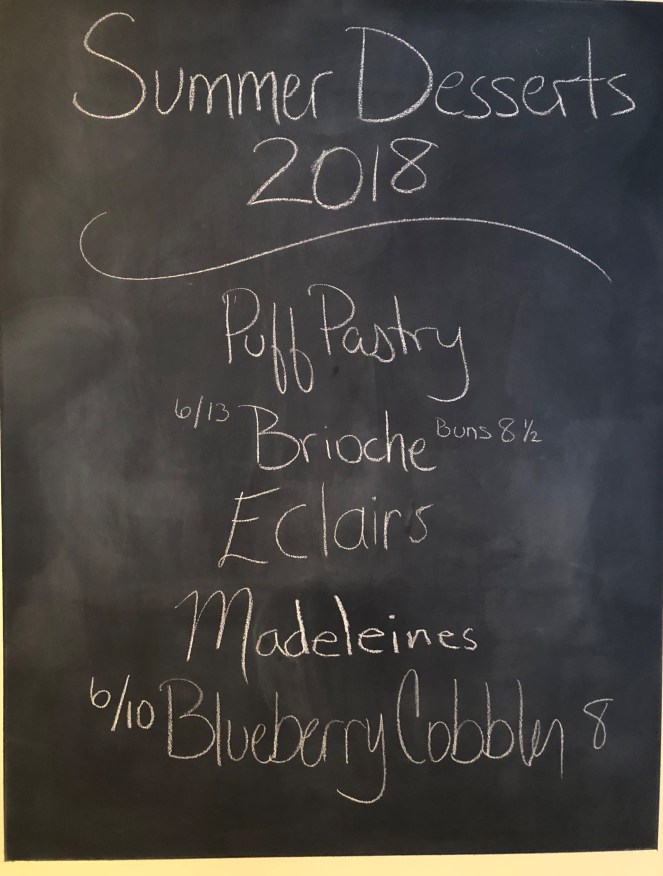 Summer Desserts
2018
Puff Pastry
6/13 Brioche Buns 8 ½
Eclairs
Madeleines
6/10 Blueberry Cobbler 8